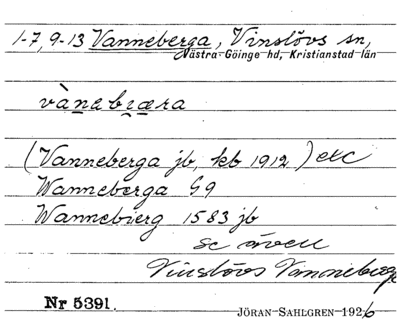 1-7, 9-13 Vanneberga, Vinslövs sn,
Västra-Göinge hd, Kristianstad län
vànebiæra
(Vanneberga jb, kb 1912) etc
Wanneberga G9
Wannebierg 1583 jb
se även
Vinslövs Vanneberga
Nr 5391.
JÖRAN SAHLGREN 1926